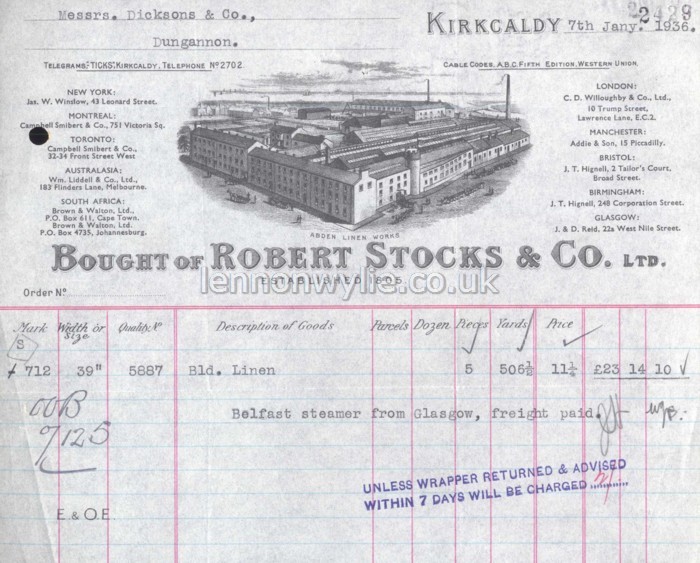 Messrs. Dicksons & Co.,
Dungannon.
22429
KIRKCALDY 7th Jany. 1936.
TELEGRAMS:-"TICKS", KIRKCALDY, TELEPHONE Nº 2702.
CABLE CODES, A.B.C. FIFTH EDITION, WESTERN UNION.
NEW YORK:
Jas. W. Winslow, 43 Leonard Street.
MONTREAL:
Campbell Smibert & Co., 751 Victoria Sq.
TORONTO:
Campbell Smibert & Co.,
32-34 Front Street West
AUSTRALASIA:
Wm. Liddell & Co., Ltd.,
183 Flinders Lane, Melbourne.
SOUTH AFRICA:
Brown & Walton, Ltd.,
P.O. Box 611, Cape Town,
Brown & Walton, Ltd.
P.O. Box 4735, Johannesburg.
LONDON:
C. D. Willoughby & Co., Ltd.,
10 Trump Street,
Lawrence Lane, E.C.2.
MANCHESTER:
Addie & Son, 15 Piccadilly.
BRISTOL:
J. T. Hignell, 2 Tailor's Court,
Broad Street.
BIRMINGHAM:
J. T. Hignell, 248 Corporation Street.
GLASGOW:
J. & D. Reid, 22a West Nile Street.
ABDEN LINEN WORKS
BOUGHT OF ROBERT STOCKS & CO. LTD.
lennonwylie.co.uk
ESTABLISHED 1805
Order Nº
Mark Width or Size Quality Nº Description of Goods Parcels Dozen Pieces Yards Price
S
712 39" 5887 Bld. Linen 5 505½ 11¼ £23 14 10
OOB
9/125
Belfast steamer from Glasgow, freight paid.
UNLESS WRAPPER RETURNED & ADVISED
WITHIN 7 DAYS WILL BE CHARGED
E. & O.E.